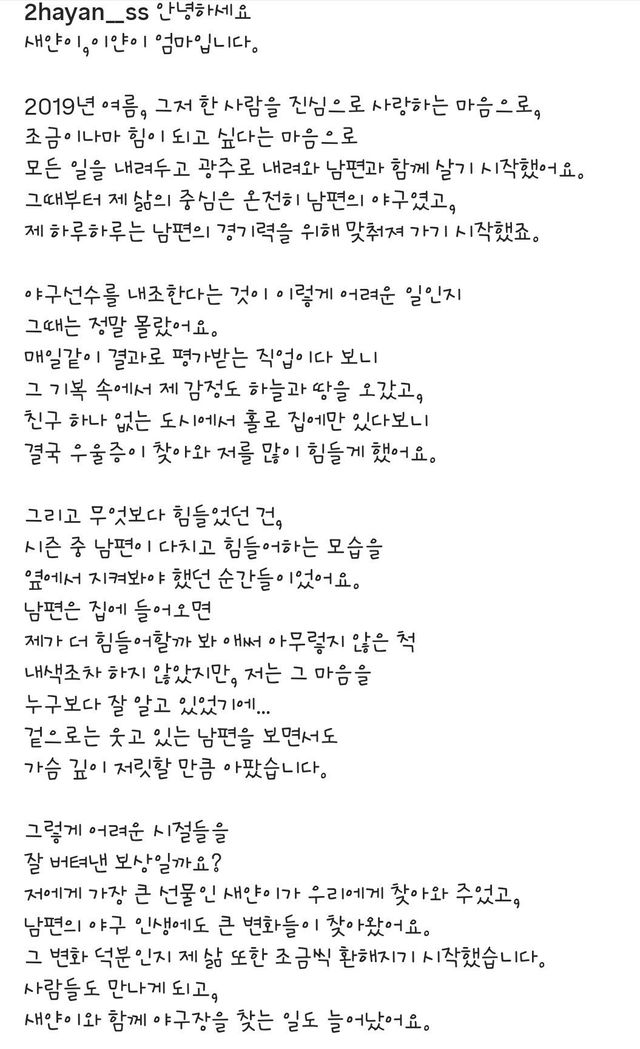 2hayan__ss 안녕하세요
새얀이,이얀이 엄마입니다.
2019년 여름, 그저 한 사람을 진심으로 사랑하는 마음으로,
조금이나마 힘이 되고 싶다는 마음으로
모든 일을 내려두고 광주로 내려와 남편과 함께 살기 시작했어요.
그때부터 제 삶의 중심은 온전히 남편의 야구였고,
제 하루하루는 남편의 경기력을 위해 맞춰져 가기 시작했죠.
야구선수를 내조한다는 것이 이렇게 어려운 일인지
그때는 정말 몰랐어요.
매일같이 결과로 평가받는 직업이다 보니
그 기복 속에서 제 감정도 하늘과 땅을 오갔고,
친구 하나 없는 도시에서 홀로 집에만 있다보니
결국 우울증이 찾아와 저를 많이 힘들게 했어요.
그리고 무엇보다 힘들었던 건,
시즌 중 남편이 다치고 힘들어하는 모습을
옆에서 지켜봐야 했던 순간들이었어요.
남편은 집에 들어오면
제가 더 힘들어할까 봐 애써 아무렇지 않은 척
내색조차 하지 않았지만, 저는 그 마음을
누구보다 잘 알고 있었기에...
겉으로는 웃고 있는 남편을 보면서도
가슴 깊이 저릿할 만큼 아팠습니다.
그렇게 어려운 시절들을
잘 버텨낸 보상일까요?
저에게 가장 큰 선물인 새얀이가 우리에게 찾아와 주었고,
남편의 야구 인생에도 큰 변화들이 찾아왔어요.
그 변화 덕분인지 제 삶 또한 조금씩 환해지기 시작했습니다.
사람들도 만나게 되고,
새얀이와 함께 야구장을 찾는 일도 늘어났어요.